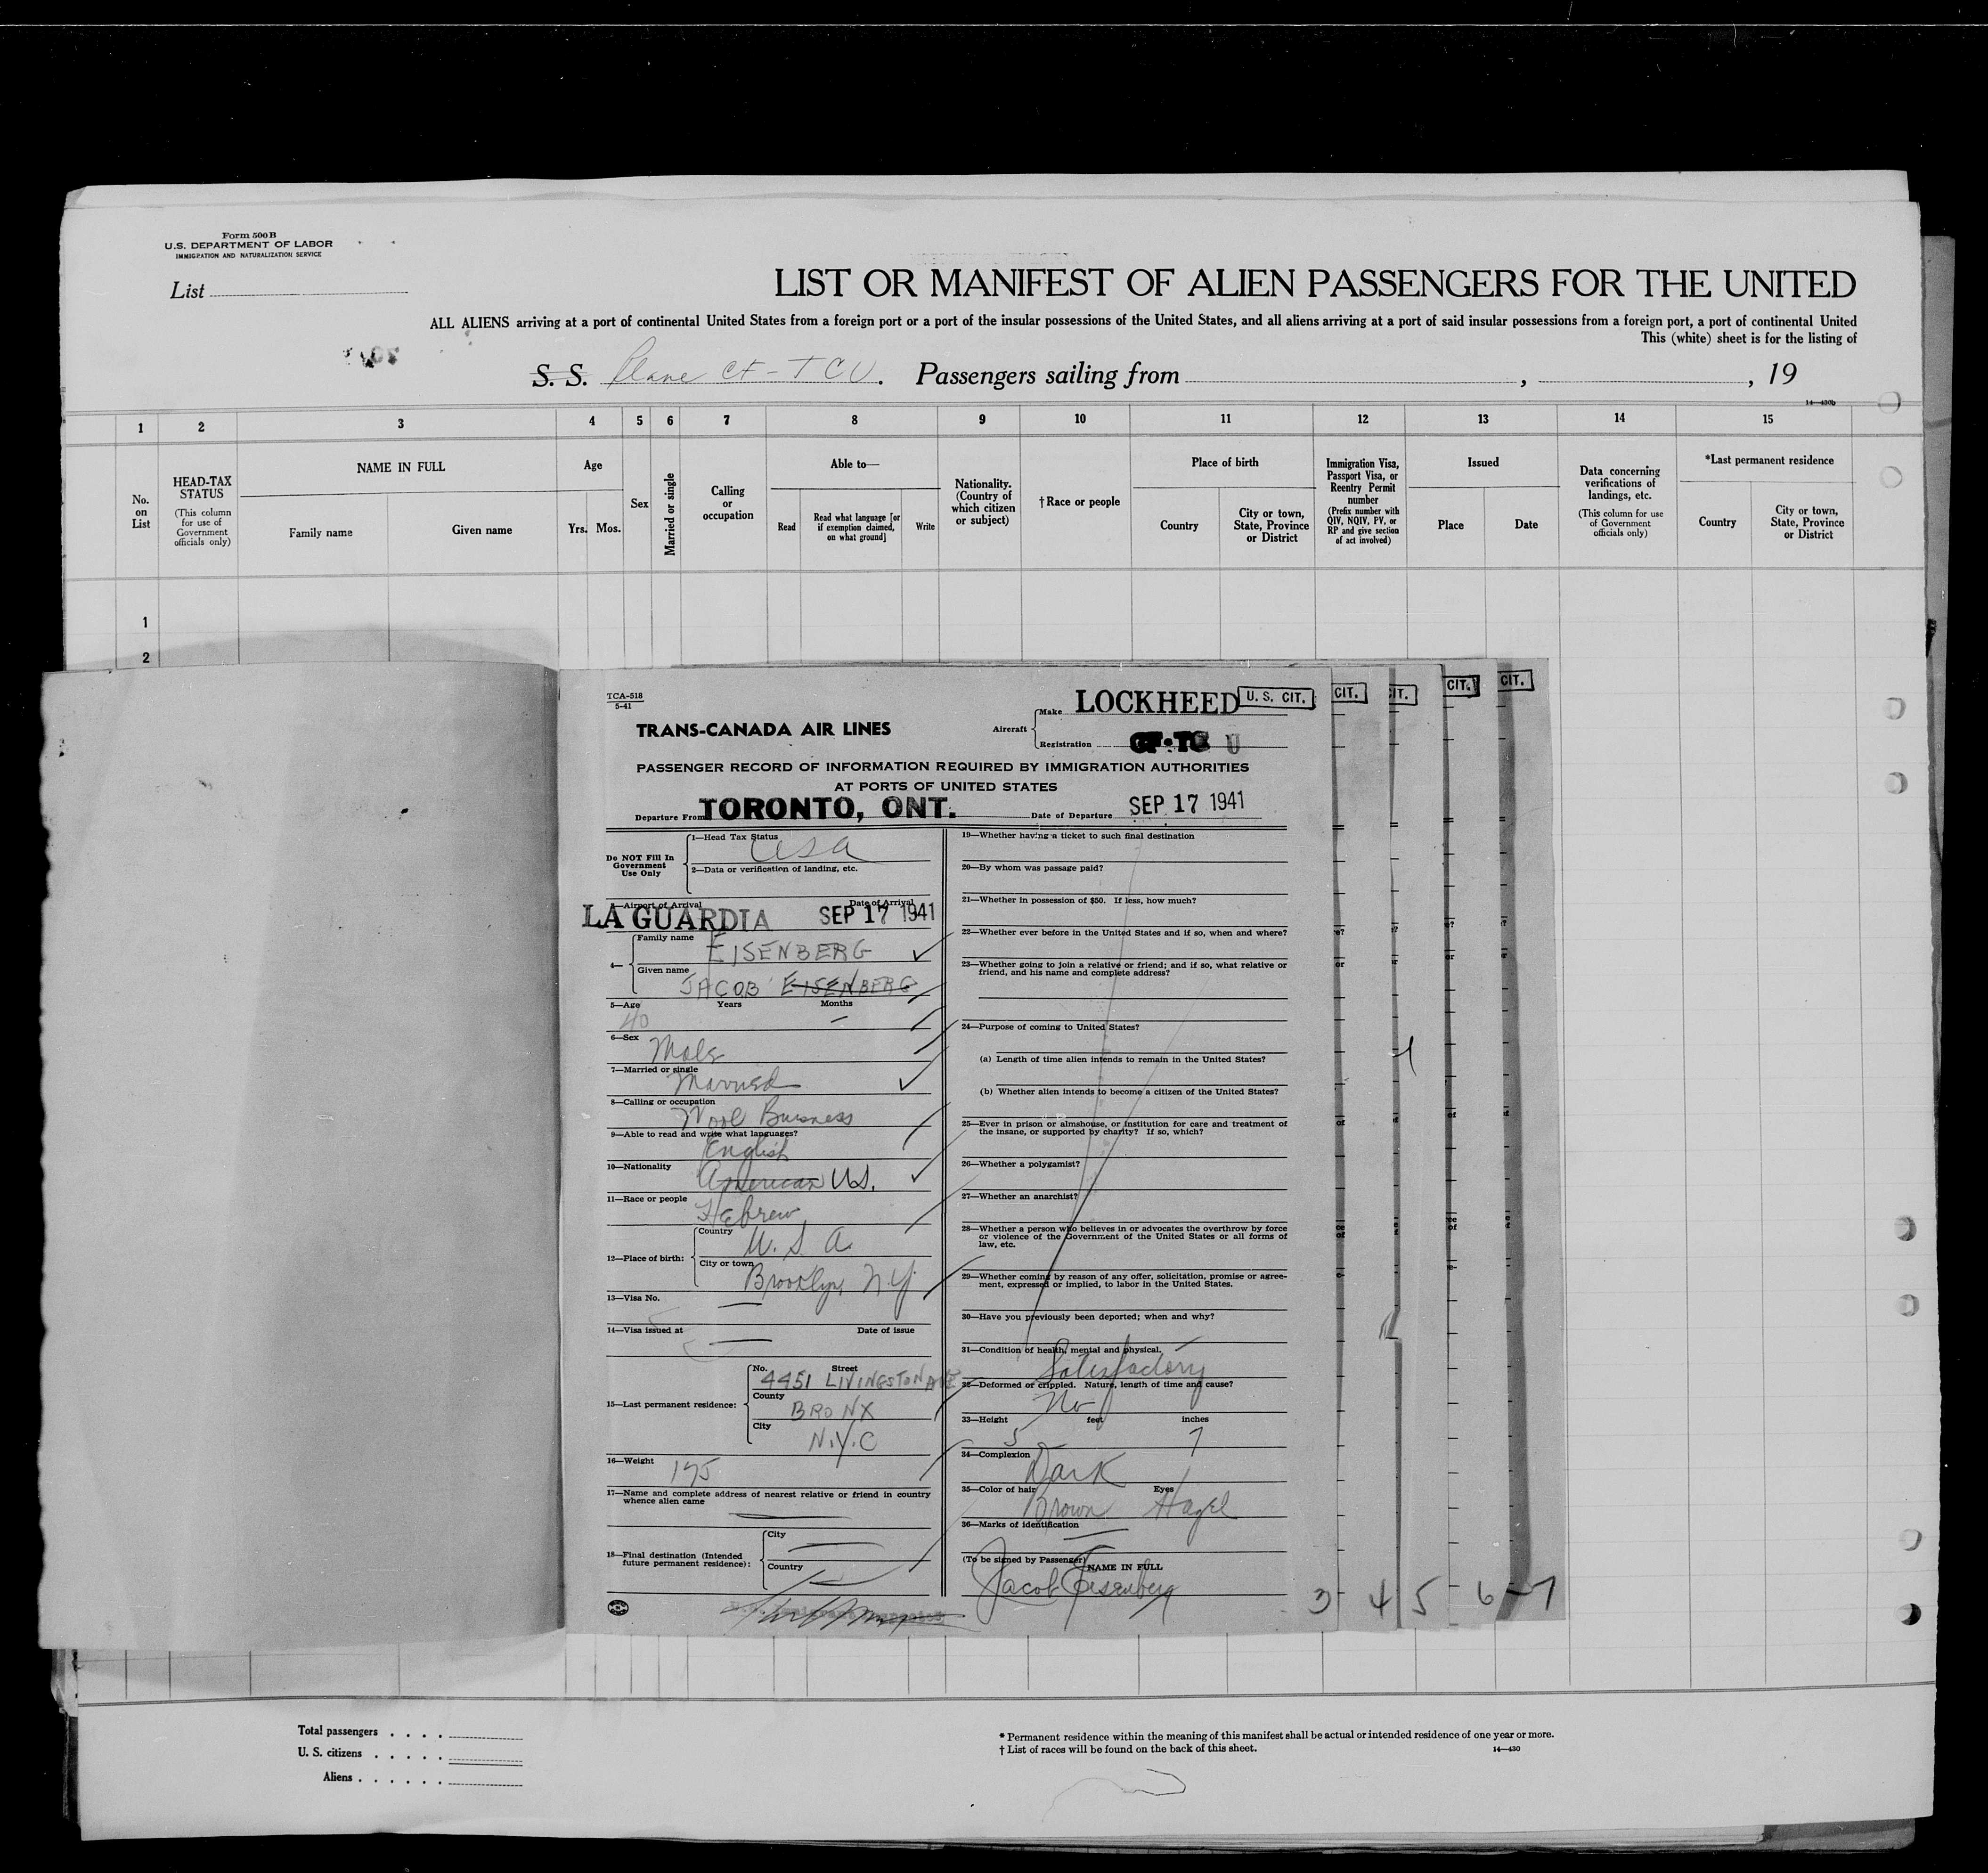 Form 500B
U.S. DEPARTMENT OF LABOR
IMMIGRATION AND NATURALIZATION SERVICE
List
LIST OR MANIFEST OF ALIEN PASSENGERS FOR THE UNITED
ALL ALIENS arriving at a port of continental United States from a foreign port or a port of the insular possessions of the United States, and all aliens arriving at a port of said insular possessions from a foreign port, a port of continental United
This (white) sheet is for the listing of
S. S. Plane CF-TCU. Passengers sailing from , , 19
14-430b
1 2 3 4 5 6 7 8 9 10 11 12 13 14 15
No. on List
HEAD-TAX STATUS
(This column for use of Government officials only)
NAME IN FULL
Family name
Given name
Age
Yrs. Mos.
Sex
Married or single
Calling or occupation
Able to—
Read
Read what language [or if exemption claimed, on what ground]
Write
Nationality. (Country of which citizen or subject)
†Race or people
Place of birth
Country
City or town, State, Province or District
Immigration Visa, Passport Visa, or Reentry Permit number
(Prefix number with QIV, NQIV, PV, or RP and give section of act involved)
Issued
Place
Date
Data concerning verifications of landings, etc.
(This column for use of Government officials only)
*Last permanent residence
Country
City or town, State, Province or District
1
2
TCA-518
5-41
TRANS-CANADA AIR LINES
Aircraft
Make LOCKHEED
U. S. CIT.
CIT.
IT.
CIT.
CIT.
Registration CF-TC U
PASSENGER RECORD OF INFORMATION REQUIRED BY IMMIGRATION AUTHORITIES
AT PORTS OF UNITED STATES
Departure From TORONTO, ONT. Date of Departure SEP 17 1941
Do NOT Fill In Government Use Only
1—Head Tax Status USA
2—Data or verification of landing, etc.
3—Airport of Arrival Date of Arrival
LA GUARDIA SEP 17 1941
4—
Family name EISENBERG
Given name JACOB EISENBERG
5—Age Years Months
40 —
6—Sex
Male
7—Married or single
Married
8—Calling or occupation
Wool Business
9—Able to read and write what languages?
English
10—Nationality
American U.S.
11—Race or people
Hebrew
12—Place of birth:
Country U. S. A.
City or town Brooklyn, N.Y.
13—Visa No. —
14—Visa issued at — Date of issue
15—Last permanent residence:
No. Street
4451 LIVINGSTON AVE
County
BRONX
City
N.Y.C
16—Weight 175
17—Name and complete address of nearest relative or friend in country whence alien came
18—Final destination (Intended future permanent residence):
City
Country
19—Whether having a ticket to such final destination
20—By whom was passage paid?
21—Whether in possession of $50. If less, how much?
22—Whether ever before in the United States and if so, when and where?
23—Whether going to join a relative or friend; and if so, what relative or friend, and his name and complete address?
24—Purpose of coming to United States?
(a) Length of time alien intends to remain in the United States?
(b) Whether alien intends to become a citizen of the United States?
25—Ever in prison or almshouse, or institution for care and treatment of the insane, or supported by charity? If so, which?
26—Whether a polygamist?
27—Whether an anarchist?
28—Whether a person who believes in or advocates the overthrow by force or violence of the Government of the United States or all forms of law, etc.
29—Whether coming by reason of any offer, solicitation, promise or agreement, expressed or implied, to labor in the United States.
30—Have you previously been deported; when and why?
31—Condition of health, mental and physical.
Satisfactory
32—Deformed or crippled. Nature, length of time and cause?
No
33—Height feet inches
5 7
34—Complexion
Dark
35—Color of hair Eyes
Brown Hazel
36—Marks of identification
(To be signed by Passenger) NAME IN FULL
Jacob Eisenberg
3 4 5 6 7
Total passengers
U. S. citizens
Aliens
* Permanent residence within the meaning of this manifest shall be actual or intended residence of one year or more.
† List of races will be found on the back of this sheet.
14-430